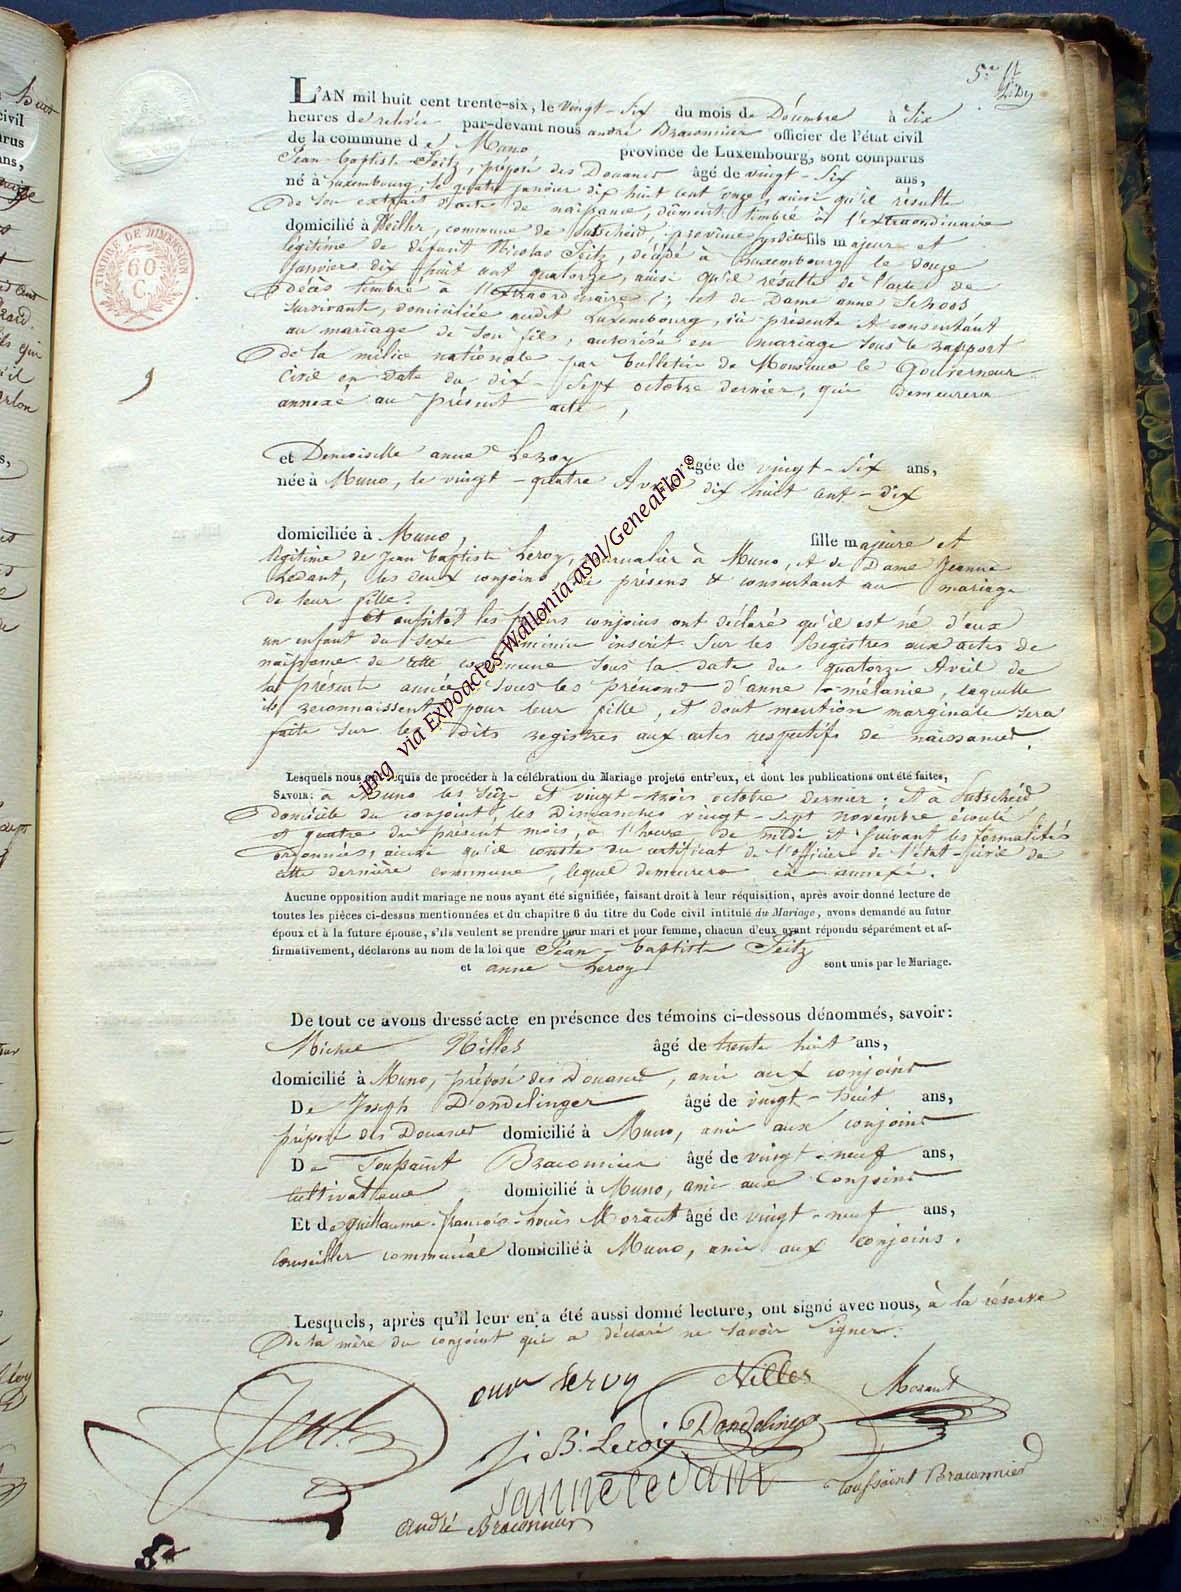 5e
L'AN mil huit cent trente-six, le vingt-six du mois de Décembre à Six
heures de relevée par-devant nous andré Braconnier officier de l'état civil
de la commune de Muno province de Luxembourg, sont comparus
Jean-baptiste Feitz, préposé des Douanes âgé de vingt-six ans,
né à Luxembourg, le quatre janvier dix huit cent onze, ainsi qu'il résulte
de son extrait d'acte de naissance, dûment timbré à l'extraordinaire
domicilié à Weiller, commune de Hutscheid, province susdite fils majeur et
légitime de défunt Nicolas Feitz, décédé à Luxembourg le douze
Janvier dix huit cent quatorze, ainsi qu'il résulte de l'acte de
décès timbré à l'extraordinaire ; et de Dame anne Schoos
survivante, domiciliée audit Luxembourg, ici présente et consentant
au mariage de son fils, autorisé en mariage sous le rapport
de la milice nationale par bulletin de Monsieur le Gouverneur
Civil en date du dix-sept octobre dernier, qui demeurera
annexé au présent acte,
et Demoiselle anne Leroy âgée de vingt-six ans,
née à Muno, le vingt-quatre Avril dix huit cent-dix
domiciliée à Muno, fille majeure et
légitime de Jean baptiste Leroy, journalier à Muno, et de Dame Jeanne
Ledant, les deux conjoins ici présens & consentant au mariage
de leur fille.
Et aussitôt les futurs conjoins ont déclaré qu'il est né d'eux
un enfant du sexe féminin inscrit sur les Registres aux actes de
naissance de cette commune sous la date du quatorze Avril de
la présente année sous les prénoms d'anne-mélanie, laquelle
ils reconnaissent pour leur fille, et dont mention marginale sera
faite sur les dits registres aux actes respectifs de naissances.
Lesquels nous ont requis de procéder à la célébration du Mariage projeté entr'eux, et dont les publications ont été faites,
SAVOIR: à Muno les seize et vingt-trois octobre dernier; et à Hutscheid
domicile du conjoint, les Dimanches vingt-sept novembre écoulé
et quatre du présent mois, à l'heure de midi et suivant les formalités
ordonnées, ainsi qu'il conste du certificat de l'officier de l'état-civil de
cette dernière commune, lequel demeurera ci annexé.
Aucune opposition audit mariage ne nous ayant été signifiée, faisant droit à leur réquisition, après avoir donné lecture de
toutes les pièces ci-dessus mentionnées et du chapitre 6 du titre du Code civil intitulé du Mariage, avons demandé au futur
époux et à la future épouse, s'ils veulent se prendre pour mari et pour femme, chacun d'eux ayant répondu séparément et af-
firmativement, déclarons au nom de la loi que Jean-baptiste Feitz
et anne Leroy sont unis par le Mariage.
De tout ce avons dressé acte en présence des témoins ci-dessous dénommés, savoir:
Michel Nilles âgé de trente huit ans,
domicilié à Muno, préposé des Douanes, ami aux conjoins
De Joseph Dondelinger âgé de vingt-huit ans,
préposé des Douanes domicilié à Muno, ami aux conjoins
De Toussaint Braconnier âgé de vingt-neuf ans,
cultivateur domicilié à Muno, ami aux conjoins
Et de guillaume-françois-Louis Morant âgé de vingt-neuf ans,
Conseiller communal domicilié à Muno, ami aux conjoins.
Lesquels, après qu'il leur en a été aussi donné lecture, ont signé avec nous, à la réserve
de la mère du conjoint qui a déclaré ne savoir signer.
anne Leroy Nilles Morant
Feitz J. B. Leroy Dondelinger
Janne Ledant Toussaint Braconnier
André Braconnier
TIMBRE DE DIMENSION
60
C.
img via Expoactes-Wallonia-asbl/GeneaFlor©